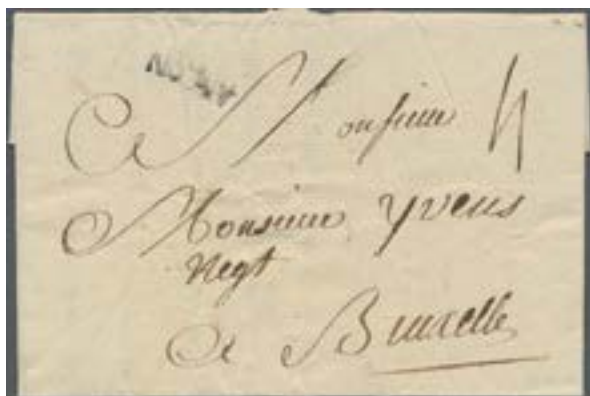 A Monsieur 4
Monsieur yvens
Negt
a Bruxelle